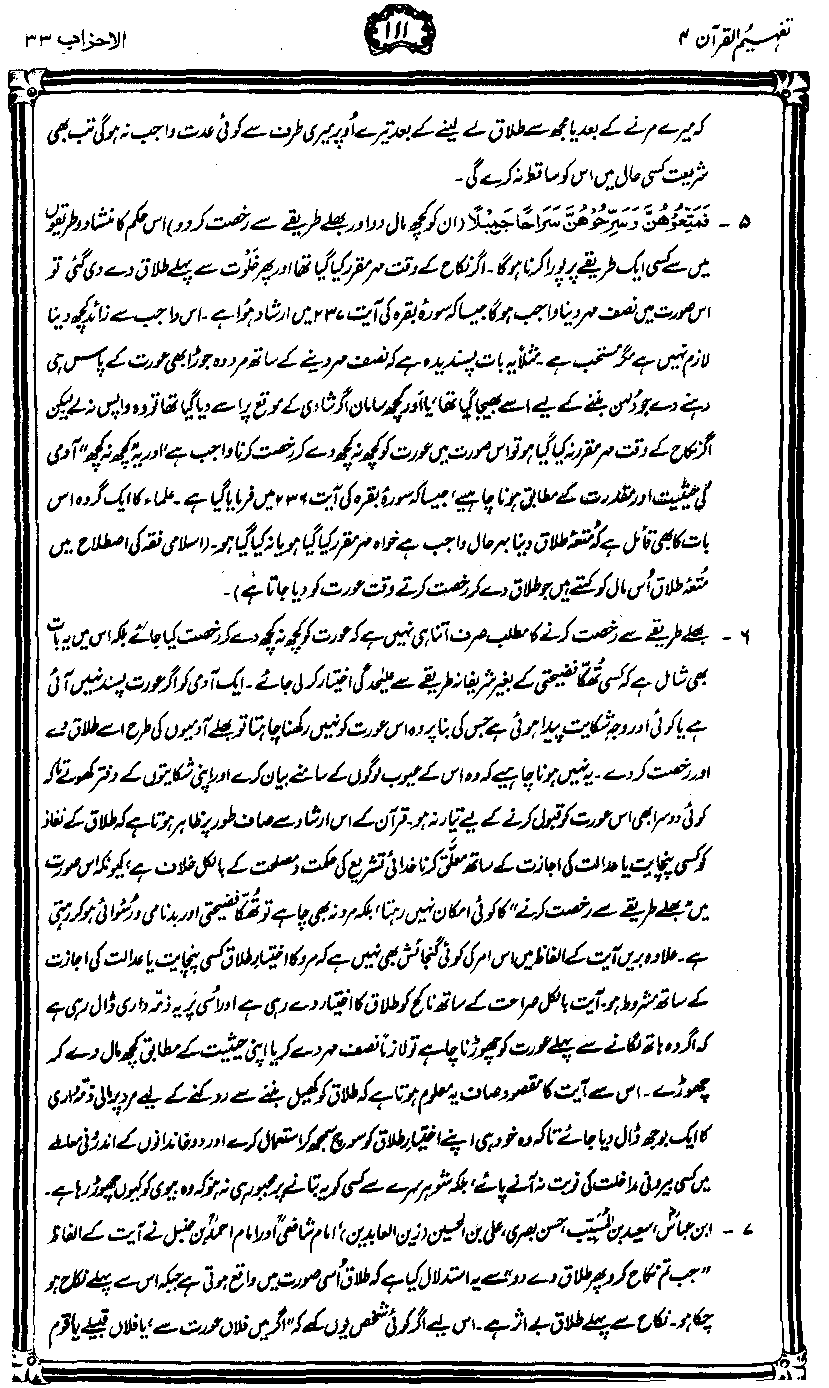 تفہیم القرآن ۴
۱۱۱
الاحزاب ۳۳
کہ میرے مرنے کے بعد یا مجھ سے طلاق لے لینے کے بعد تیرے اُوپر میری طرف سے کوئی عدت واجب نہ ہوگی تب بھی
شریعت کسی حال میں اس کو ساقط نہ کرے گی۔
۵ - فَمَتِّعُوْهُنَّ وَسَرِّحُوْهُنَّ سَرَاحًا جَمِيْلًا (ان کو کچھ مال دو اور بھلے طریقے سے رخصت کردو) اس حکم کا منشاء دو طریقوں
میں سے کسی ایک طریقے پر پورا کرنا ہوگا۔ اگر نکاح کے وقت مہر مقرر کیا گیا تھا اور پھر خَلْوت سے پہلے طلاق دے دی گئی تو
اس صورت میں نصف مہر دینا واجب ہوگا جیسا کہ سورۂ بقرہ کی آیت ۲۳۷ میں ارشاد ہوا ہے۔ اس واجب سے زائد کچھ دینا
لازم نہیں ہے مگر مستحب ہے۔ مثلاً یہ بات پسندیدہ ہے کہ نصف مہر دینے کے ساتھ مرد وہ جوڑا بھی عورت کے پاس ہی
رہنے دے جو دُلہن بننے کے لیے اُسے بھیجا گیا تھا، یا اَور کچھ سامان اگر شادی کے موقع پر اسے دیا گیا تھا تو وہ واپس نہ لے لیکن
اگر نکاح کے وقت مہر مقرر نہ کیا گیا ہو تو اس صورت میں عورت کو کچھ نہ کچھ دے کر رخصت کرنا واجب ہے، اور یہ "کچھ نہ کچھ" آدمی
کی حیثیت اور مقدرت کے مطابق ہونا چاہیے، جیسا کہ سورۂ بقرہ کی آیت ۲۳۶ میں فرمایا گیا ہے۔ علماء کا ایک گروہ اس
بات کا بھی قائل ہے کہ مُتعۂ طلاق دینا بہر حال واجب ہے خواہ مہر مقرر کیا گیا ہو یا نہ کیا گیا ہو۔ (اسلامی فقہ کی اصطلاح میں
مُتعۂ طلاق اُس مال کو کہتے ہیں جو طلاق دے کر رخصت کرتے وقت عورت کو دیا جاتا ہے)۔
۶ - بھلے طریقے سے رخصت کرنے کا مطلب صرف اتنا ہی نہیں ہے کہ عورت کو کچھ نہ کچھ دے کر رخصت کیا جائے بلکہ اس میں یہ بات
بھی شامل ہے کہ کسی تُھکّا فضیحتی کے بغیر شریفانہ طریقے سے علیٰحدگی اختیار کرلی جائے۔ ایک آدمی کو اگر عورت پسند نہیں آئی
ہے یا کوئی اور وجہِ شکایت پیدا ہوئی ہے جس کی بنا پر وہ اس عورت کو نہیں رکھنا چاہتا تو بھلے آدمیوں کی طرح اسے طلاق دے
اور رخصت کردے۔ یہ نہیں ہونا چاہیے کہ وہ اس کے عیوب لوگوں کے سامنے بیان کرے اور اپنی شکایتوں کے دفتر کھولے تاکہ
کوئی دوسرا بھی اس عورت کو قبول کرنے کے لیے تیار نہ ہو۔ قرآن کے اس ارشاد سے صاف طور پر ظاہر ہوتا ہے کہ طلاق کے نفاذ
کو کسی پنچایت یا عدالت کی اجازت کے ساتھ معلّق کرنا خدائی تشریع کی حکمت و مصلحت کے بالکل خلاف ہے، کیونکہ اس صورت
میں "بھلے طریقے سے رخصت کرنے" کا کوئی امکان نہیں رہتا، بلکہ مرد نہ بھی چاہے تو تُھکّا فضیحتی اور بدنامی و رُسوائی ہوکر رہتی
ہے۔ علاوہ بریں آیت کے الفاظ میں اس امر کی کوئی گنجائش بھی نہیں ہے کہ مرد کا اختیارِ طلاق کسی پنچایت یا عدالت کی اجازت
کے ساتھ مشروط ہو۔ آیت بالکل صراحت کے ساتھ ناکح کو طلاق کا اختیار دے رہی ہے اور اُسی پر یہ ذمّہ داری ڈال رہی ہے
کہ اگر وہ ہاتھ لگانے سے پہلے عورت کو چھوڑنا چاہے تو لازماً نصف مہر دے کر یا اپنی حیثیت کے مطابق کچھ مال دے کر
چھوڑے۔ اس سے آیت کا مقصود صاف یہ معلوم ہوتا ہے کہ طلاق کو کھیل بننے سے روکنے کے لیے مرد پر مالی ذمّہ داری
کا ایک بوجھ ڈال دیا جائے تاکہ وہ خود ہی اپنے اختیارِ طلاق کو سوچ سمجھ کر استعمال کرے اور دو خاندانوں کے اندرونی معاملے
میں کسی بیرونی مداخلت کی نوبت نہ آنے پائے، بلکہ شوہر سرے سے کسی کو یہ بتانے پر مجبور ہی نہ ہو کہ وہ بیوی کو کیوں چھوڑ رہا ہے۔
۷ - ابن عباسؓ، سعید بن المُسَیّب، حسن بصری، علی بن الحسین (زین العابدین)، امام شافعیؒ اور امام احمدؒ بن حنبل نے آیت کے الفاظ
"جب تم نکاح کرو پھر طلاق دے دو" سے یہ استدلال کیا ہے کہ طلاق اُسی صورت میں واقع ہوتی ہے جبکہ اس سے پہلے نکاح ہو
چکا ہو۔ نکاح سے پہلے طلاق بے اثر ہے۔ اس لیے اگر کوئی شخص یوں کہے کہ "اگر میں فلاں عورت سے، یا فلاں قبیلے یا قوم